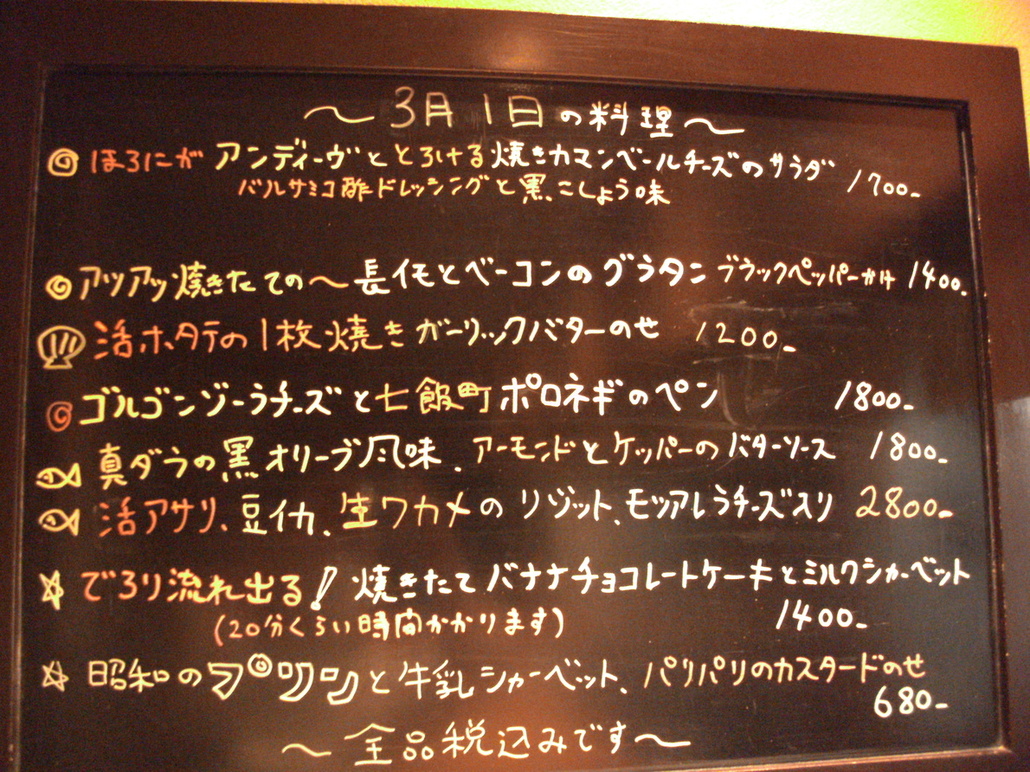 ～3月1日の料理～
ほろにが アンディーヴととろける焼きカマンベールチーズのサラダ 1700-
バルサミコ酢ドレッシングと黒こしょう味
アツアツ焼きたての～長イモとベーコンのグラタン ブラックペッパーかけ 1400.
活ホタテの1枚焼き ガーリックバターのせ 1200-
ゴルゴンゾーラチーズと七飯町ポロネギのペンネ 1800-
真ダラの黒オリーブ風味、アーモンドとケッパーのバターソース 1800-
活アサリ、豆イカ、生ワカメの リゾット、モッツアレラチーズ入り 2800-
でろり流れ出る! 焼きたて バナナチョコレートケーキとミルクシャーベット
(20分くらい時間かかります) 1400-
昭和のプリンと牛乳シャーベット、パリパリのカスタードのせ
680-
～全品税込みです～